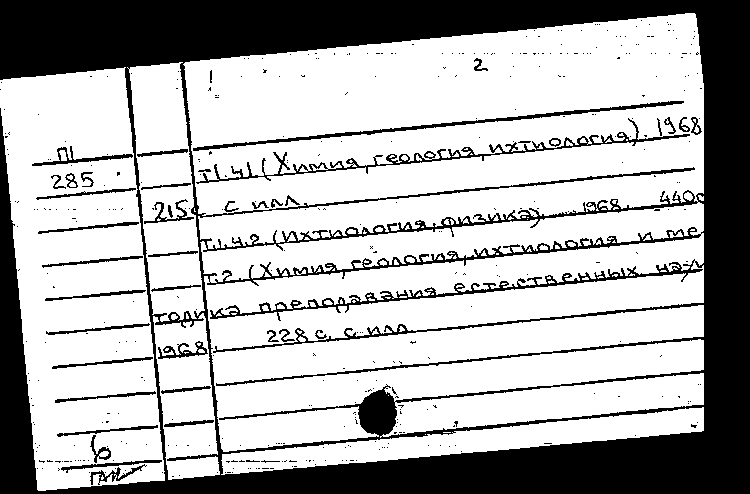 2
П1
285
т.1.ч.1. (Химия, геология, ихтиология). 1968
215с с илл.
т.1.ч.2. (Ихтиология, физика). 1968. 440с
т.2. (Химия, геология, ихтиология и ме
тодика преподавания естественных наук
1968. 228 с. с илл.
6